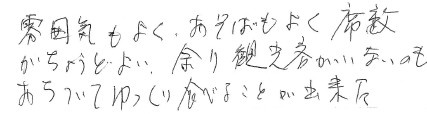 雰囲気もよく、あそばもよく席数
がちょうどよい、余り観光客がいないのも
おちついてゆっくり食べることが出来た